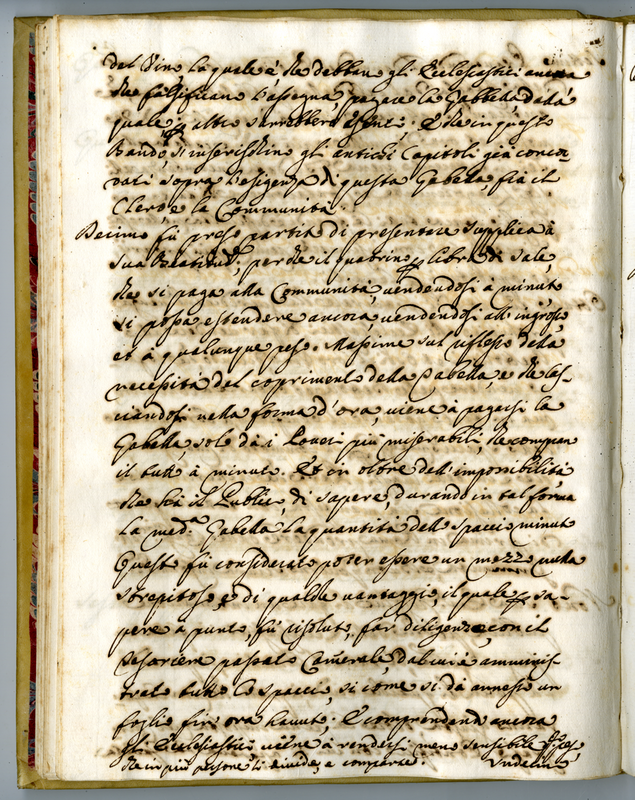 del Vino la quale è che debban gli Ecclesiastici ancora
che falsificano l'assegna, pagare la Gabbella dalla
quale p altro sarebbero esenti; E che in questo
Bando, si inserischino gli antichi Capitoli già concor
dati sopra l'esigenza di questa Gabella, frà il
Clero, e la Communità.
Decimo fù preso partito di presentare supplica à
sua Beatitud.e, perche il quatrino p libra di sale,
che si paga alla Communità, vendendosi à minuto
si possa estendere ancora, vendendosi all'ingrosso
et à qualunque peso. Massime sul riflesso della
necessità del coprimento della Tabella, e che las-
ciandosi nella forma d'ora, viene à pagarsi la
Gabella, solo dà i Poveri più miserabili, che compran
il tutto à minuto. Et in oltre dell'impossibilità
che hà il Publico, di sapere, durando in tal forma
la med.a Gabella la quantità dello spaccio minuto
Questo fù considerato poter essere un mezzo nulla
strepitoso, e di qualche vantaggio, il quale p sa-
pere à punto, fù risoluto, far diligenze, con il
Tesoriere passato Camerale, dal cui è amminis-
trato tutto lo spaccio, si come si dà annesso un
foglio fin ora havuto; E comprendendo ancora
gli Ecclesiastici viene à rendersi meno sensibile
che in più persone si divide, e comparte.
Undecimo